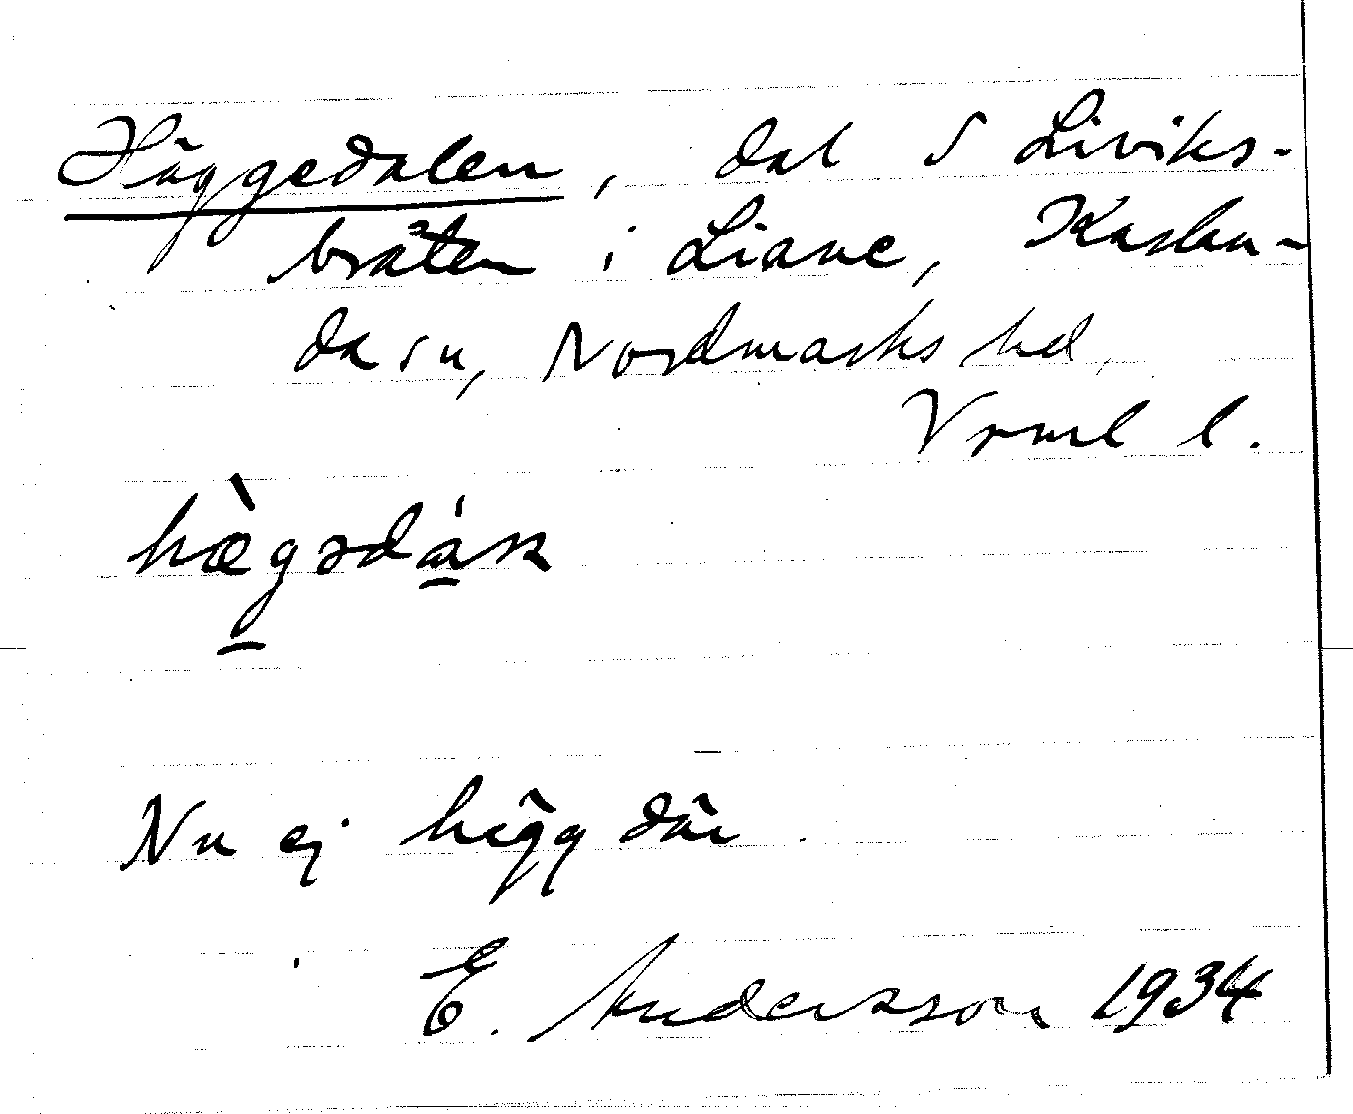 Häggedalen, dal S Liviks-
bråten i Liane, Karlan-
da sn, Nordmarks hd,
Vrml l.
hæ̀gədán
Nu ej hägg där.
E. Andersson 1934